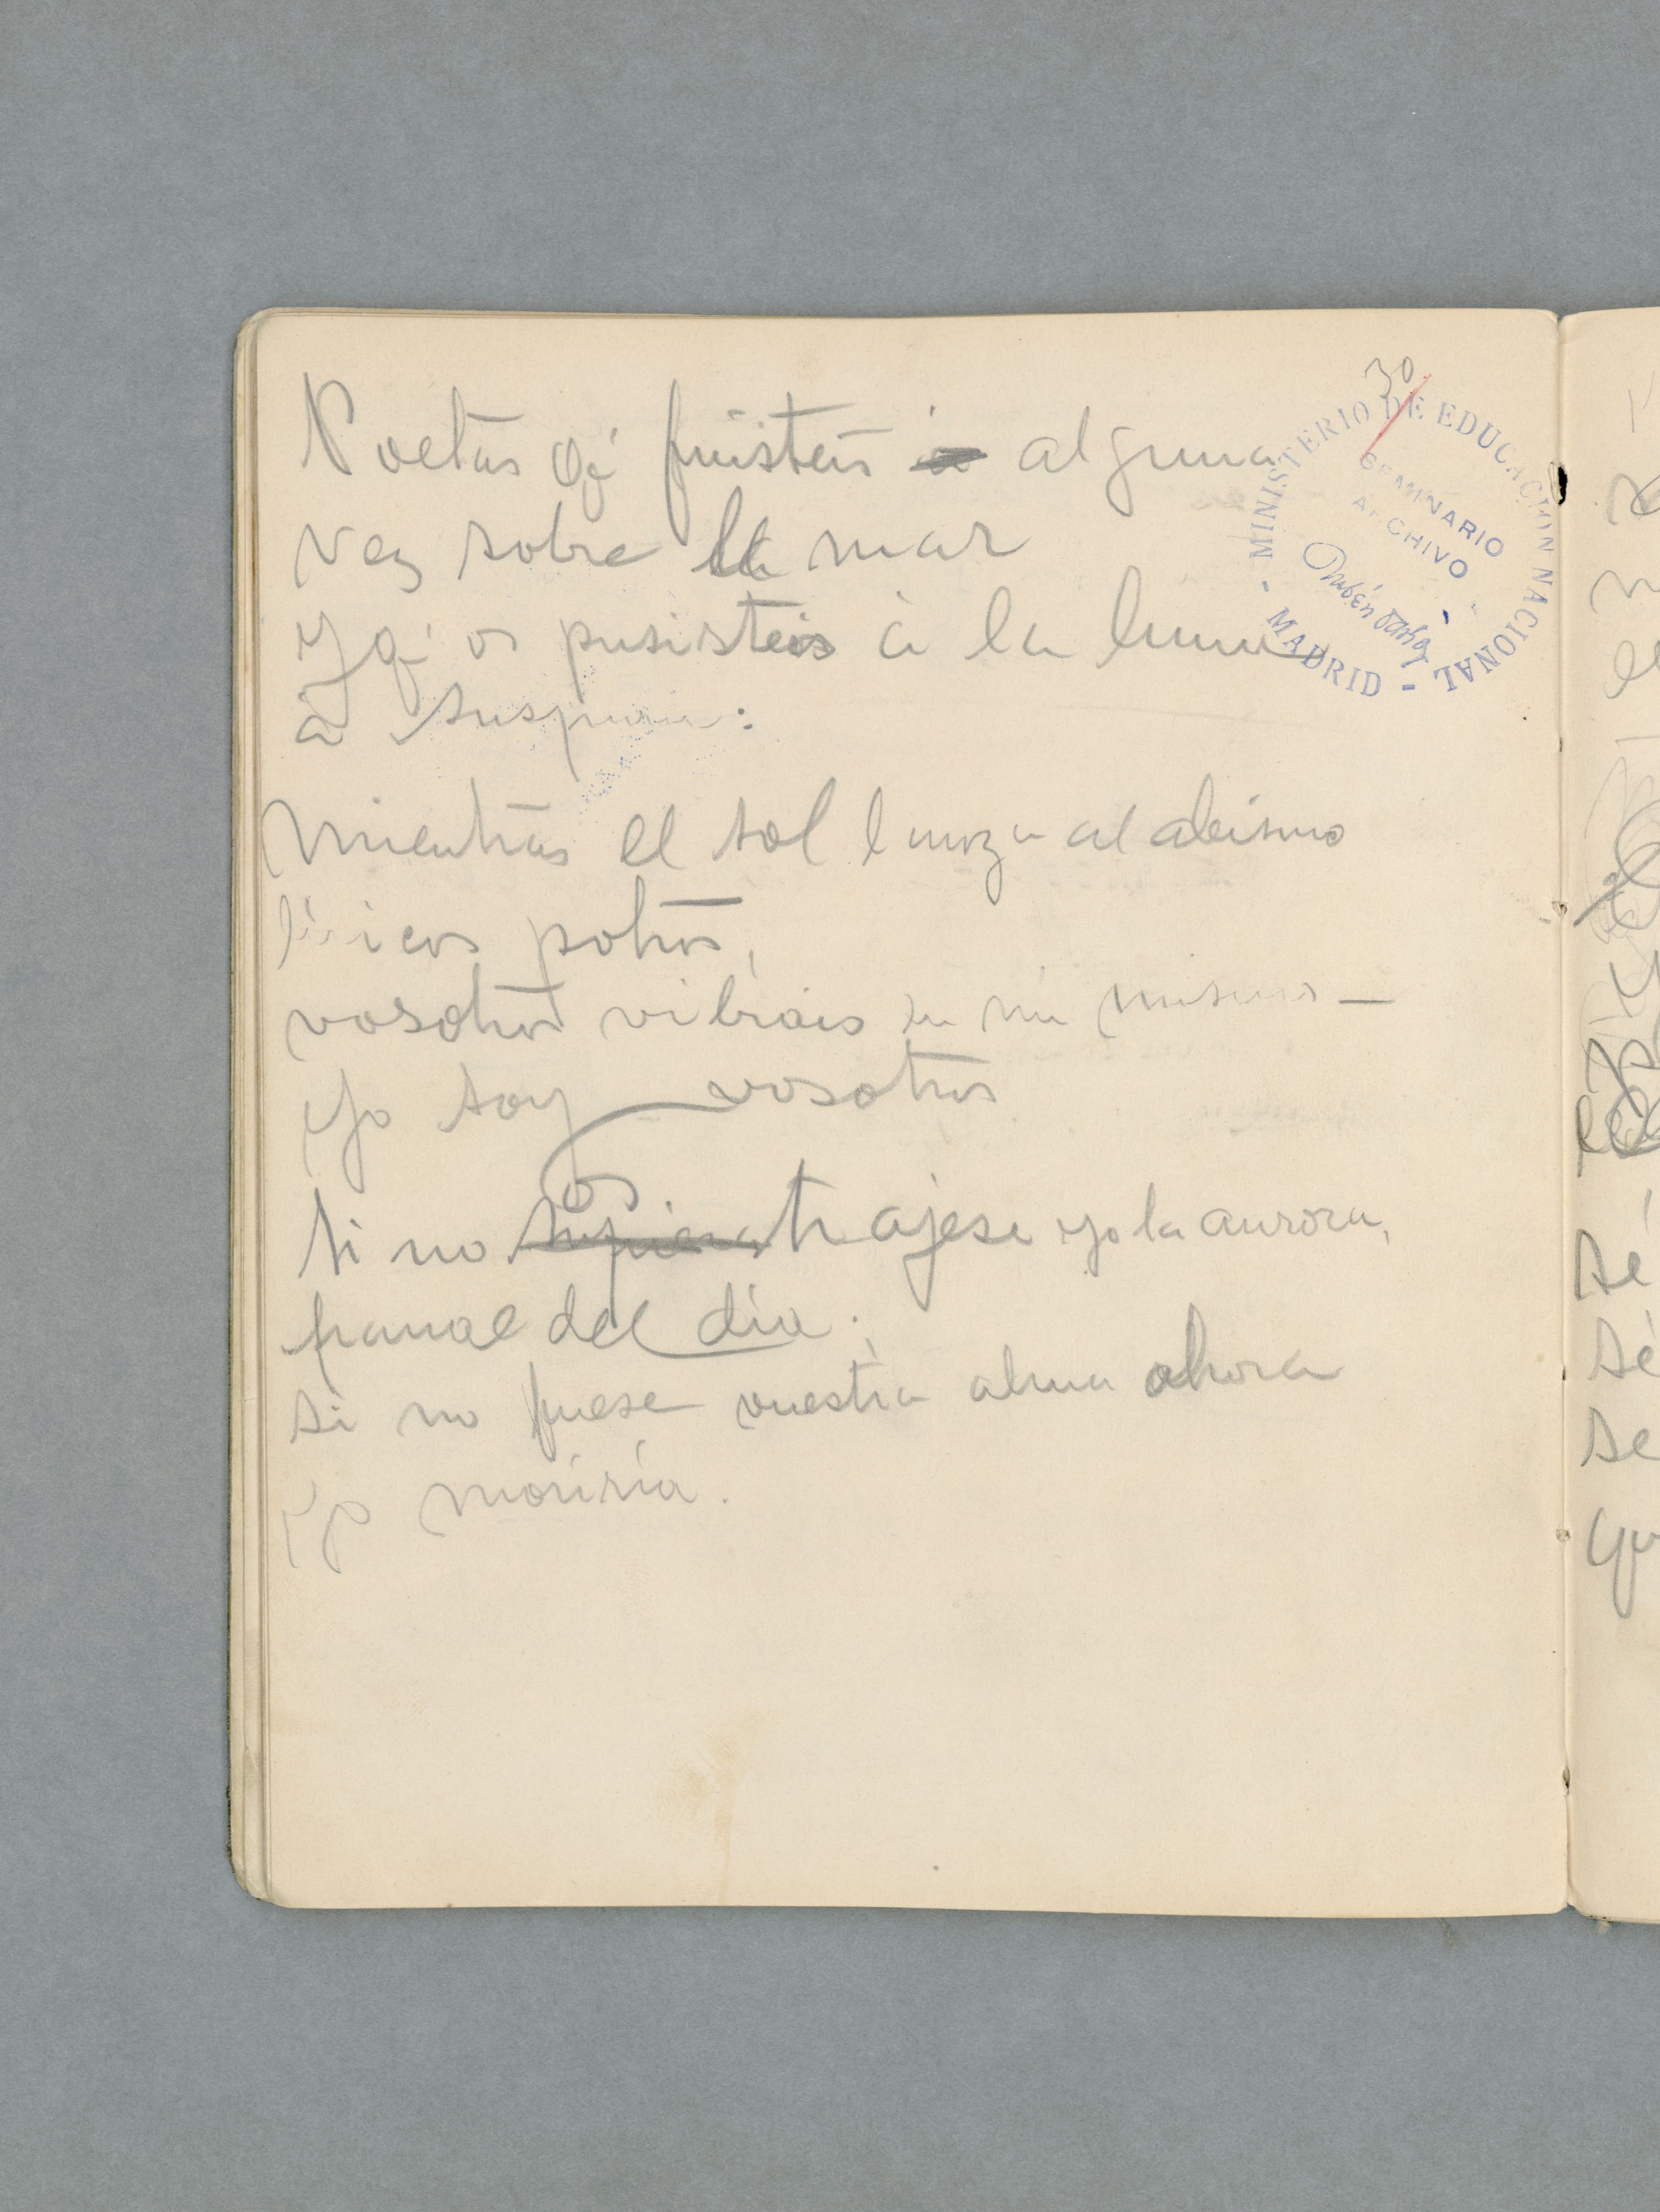 30
MINISTERIO DE EDUCACION NACIONAL - MADRID -
SEMINARIO
ARCHIVO
Rubén Darío
Poetas q' fuisteis alguna
vez sobre la mar
y q' os pusisteis á la luna
á suspirar:
Mientras el sol lanza al abismo
líricos potros,
vosotros vibrais en mi mismo —
Yo soy vosotros
os
Si no supiera trajese yo la aurora,
panal del día;
si no fuese vuestra alma ahora
yo moriría.
sé
sé
se